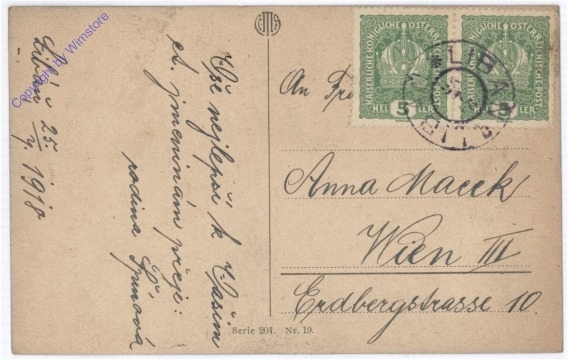 Libáň 25./V. 1918
Vše nejlepší k Vašim
ct. jmeninám přeje:
rodina Špinová
Serie 204. Nr. 19.
KAISERLICHE KÖNIGLICHE ÖSTERREICHISCHE POST
5
HELLER
KAISERLICHE KÖNIGLICHE ÖSTERREICHISCHE POST
5
HELLER
LIBÁŇ
An
Anna Macek
Wien III
Erdbergstrasse 10.
Copyright by Wimstore